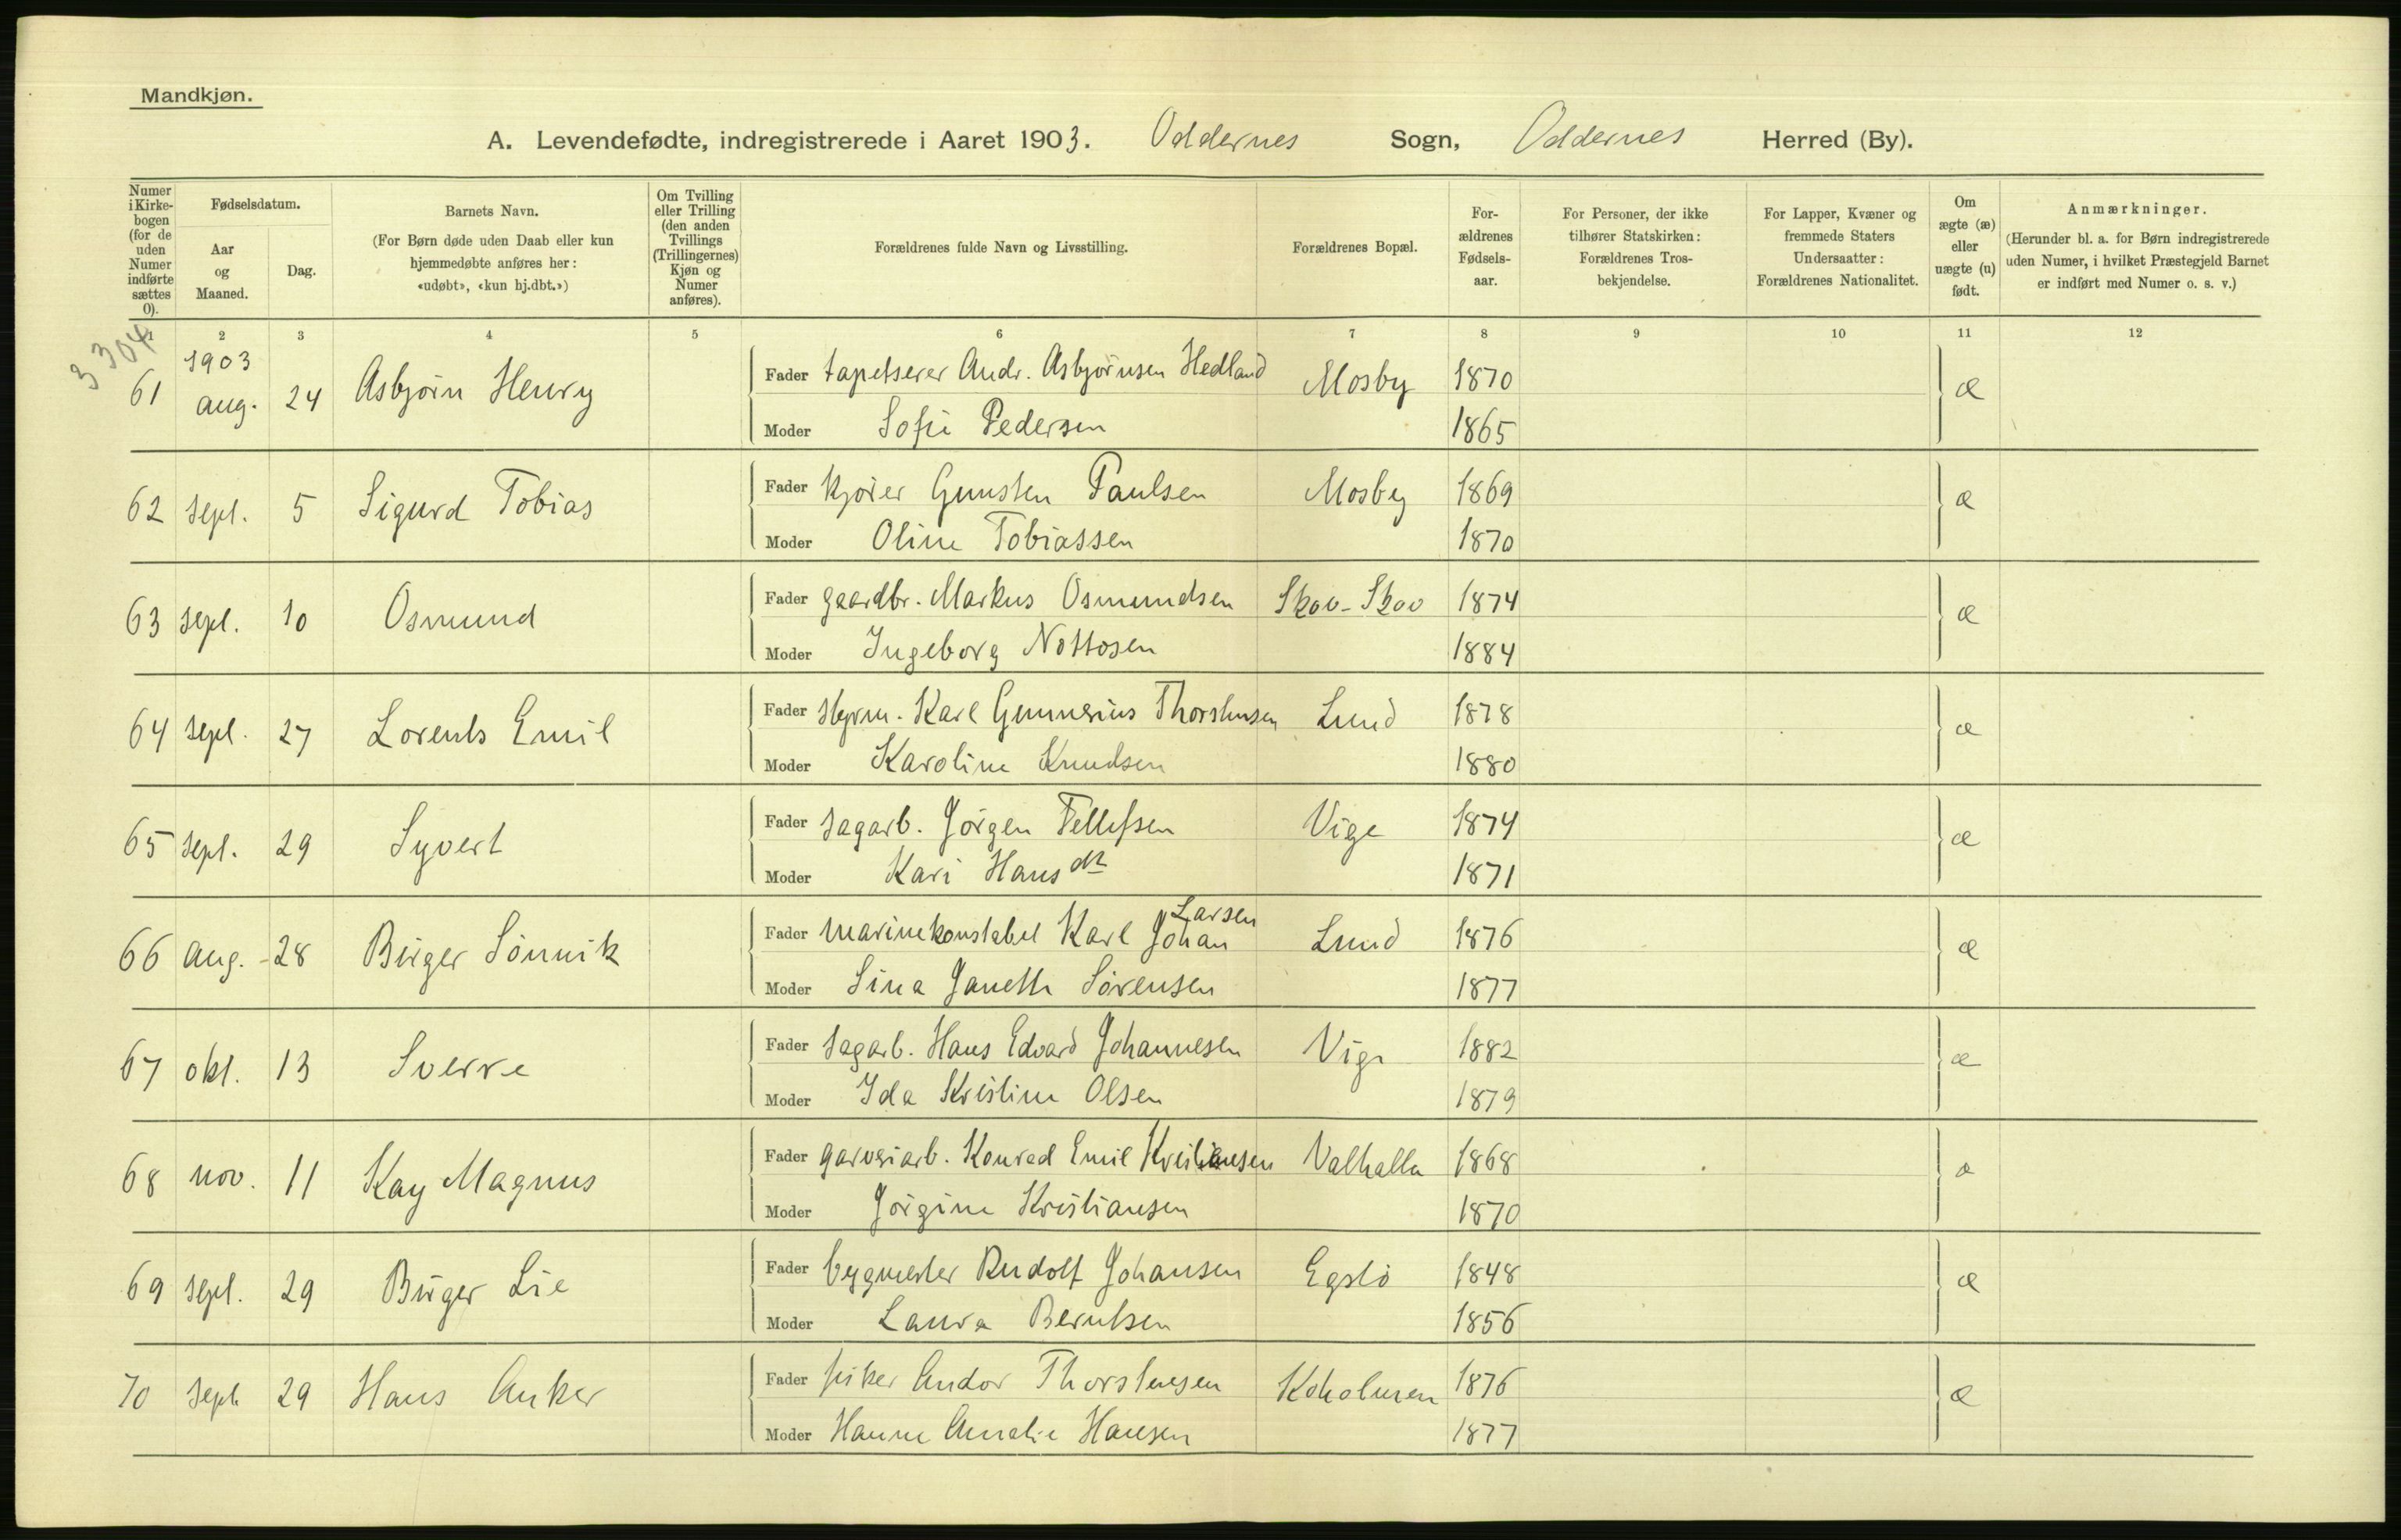 Mandkjøn.
A. Levendefødte, indregistrerede i Aaret 1903. Oddernes Sogn, Oddernes Herred (By).
Numer i Kirkebogen (for de uden Numer indførte sættes 0).
Fødselsdatum.
Aar og Maaned.
Dag.
Barnets Navn.
(For Børn døde uden Daab eller kun hjemmedøbte anføres her: «udøbt», «kun hj.dbt.»)
Om Tvilling eller Trilling (den anden Tvillings (Trillingernes) Kjøn og Numer anføres).
Forældrenes fulde Navn og Livsstilling.
Forældrenes Bopæl.
Forældrenes Fødselsaar.
For Personer, der ikke tilhører Statskirken: Forældrenes Trosbekjendelse.
For Lapper, Kvæner og fremmede Staters Undersaatter: Forældrenes Nationalitet.
Om ægte (æ) eller uægte (u) født.
Anmærkninger.
(Herunder bl. a. for Børn indregistrerede uden Numer, i hvilket Præstegjeld Barnet er indført med Numer o. s. v.)
1 2 3 4 5 6 7 8 9 10 11 12
3304
1903
61 aug. 24 Asbjørn Henry Fader tapetserer Andr. Asbjørnsen Hedland Mosby 1870 æ
Moder Sofie Pedersen 1865
62 sept. 5 Sigurd Tobias Fader kjører Gunsten Paulsen Mosby 1869 æ
Moder Oline Tobiassen 1870
63 sept. 10 Osmund Fader gaardbr. Markus Osmundsen Skov-Skov 1874 æ
Moder Ingeborg Nottosen 1884
64 sept. 27 Lorents Emil Fader styrm. Karl Gunnerius Thorstensen Lund 1878 æ
Moder Karoline Knudsen 1880
65 sept. 29 Syvert Fader sagarb. Jørgen Tellefsen Vige 1874 æ
Moder Kari Hansdtr 1871
66 aug. 28 Birger Sønnik Fader marinekonstabel Karl Johan Larsen Lund 1876 æ
Moder Sina Janette Sørensen 1877
67 okt. 13 Sverre Fader sagarb. Hans Edvard Johannesen Vige 1882 æ
Moder Ida Kristine Olsen 1879
68 nov. 11 Kay Magnus Fader garveriarb. Konrad Emil Kristiansen Valhalla 1868 æ
Moder Jørgine Kristiansen 1870
69 sept. 29 Birger Lie Fader bygmester Rudolf Johansen Egslø 1848 æ
Moder Laura Berntsen 1856
70 sept. 29 Hans Anker Fader fisker Andor Thorstensen Koholmen 1876 æ
Moder Hanne Amalie Hansen 1877